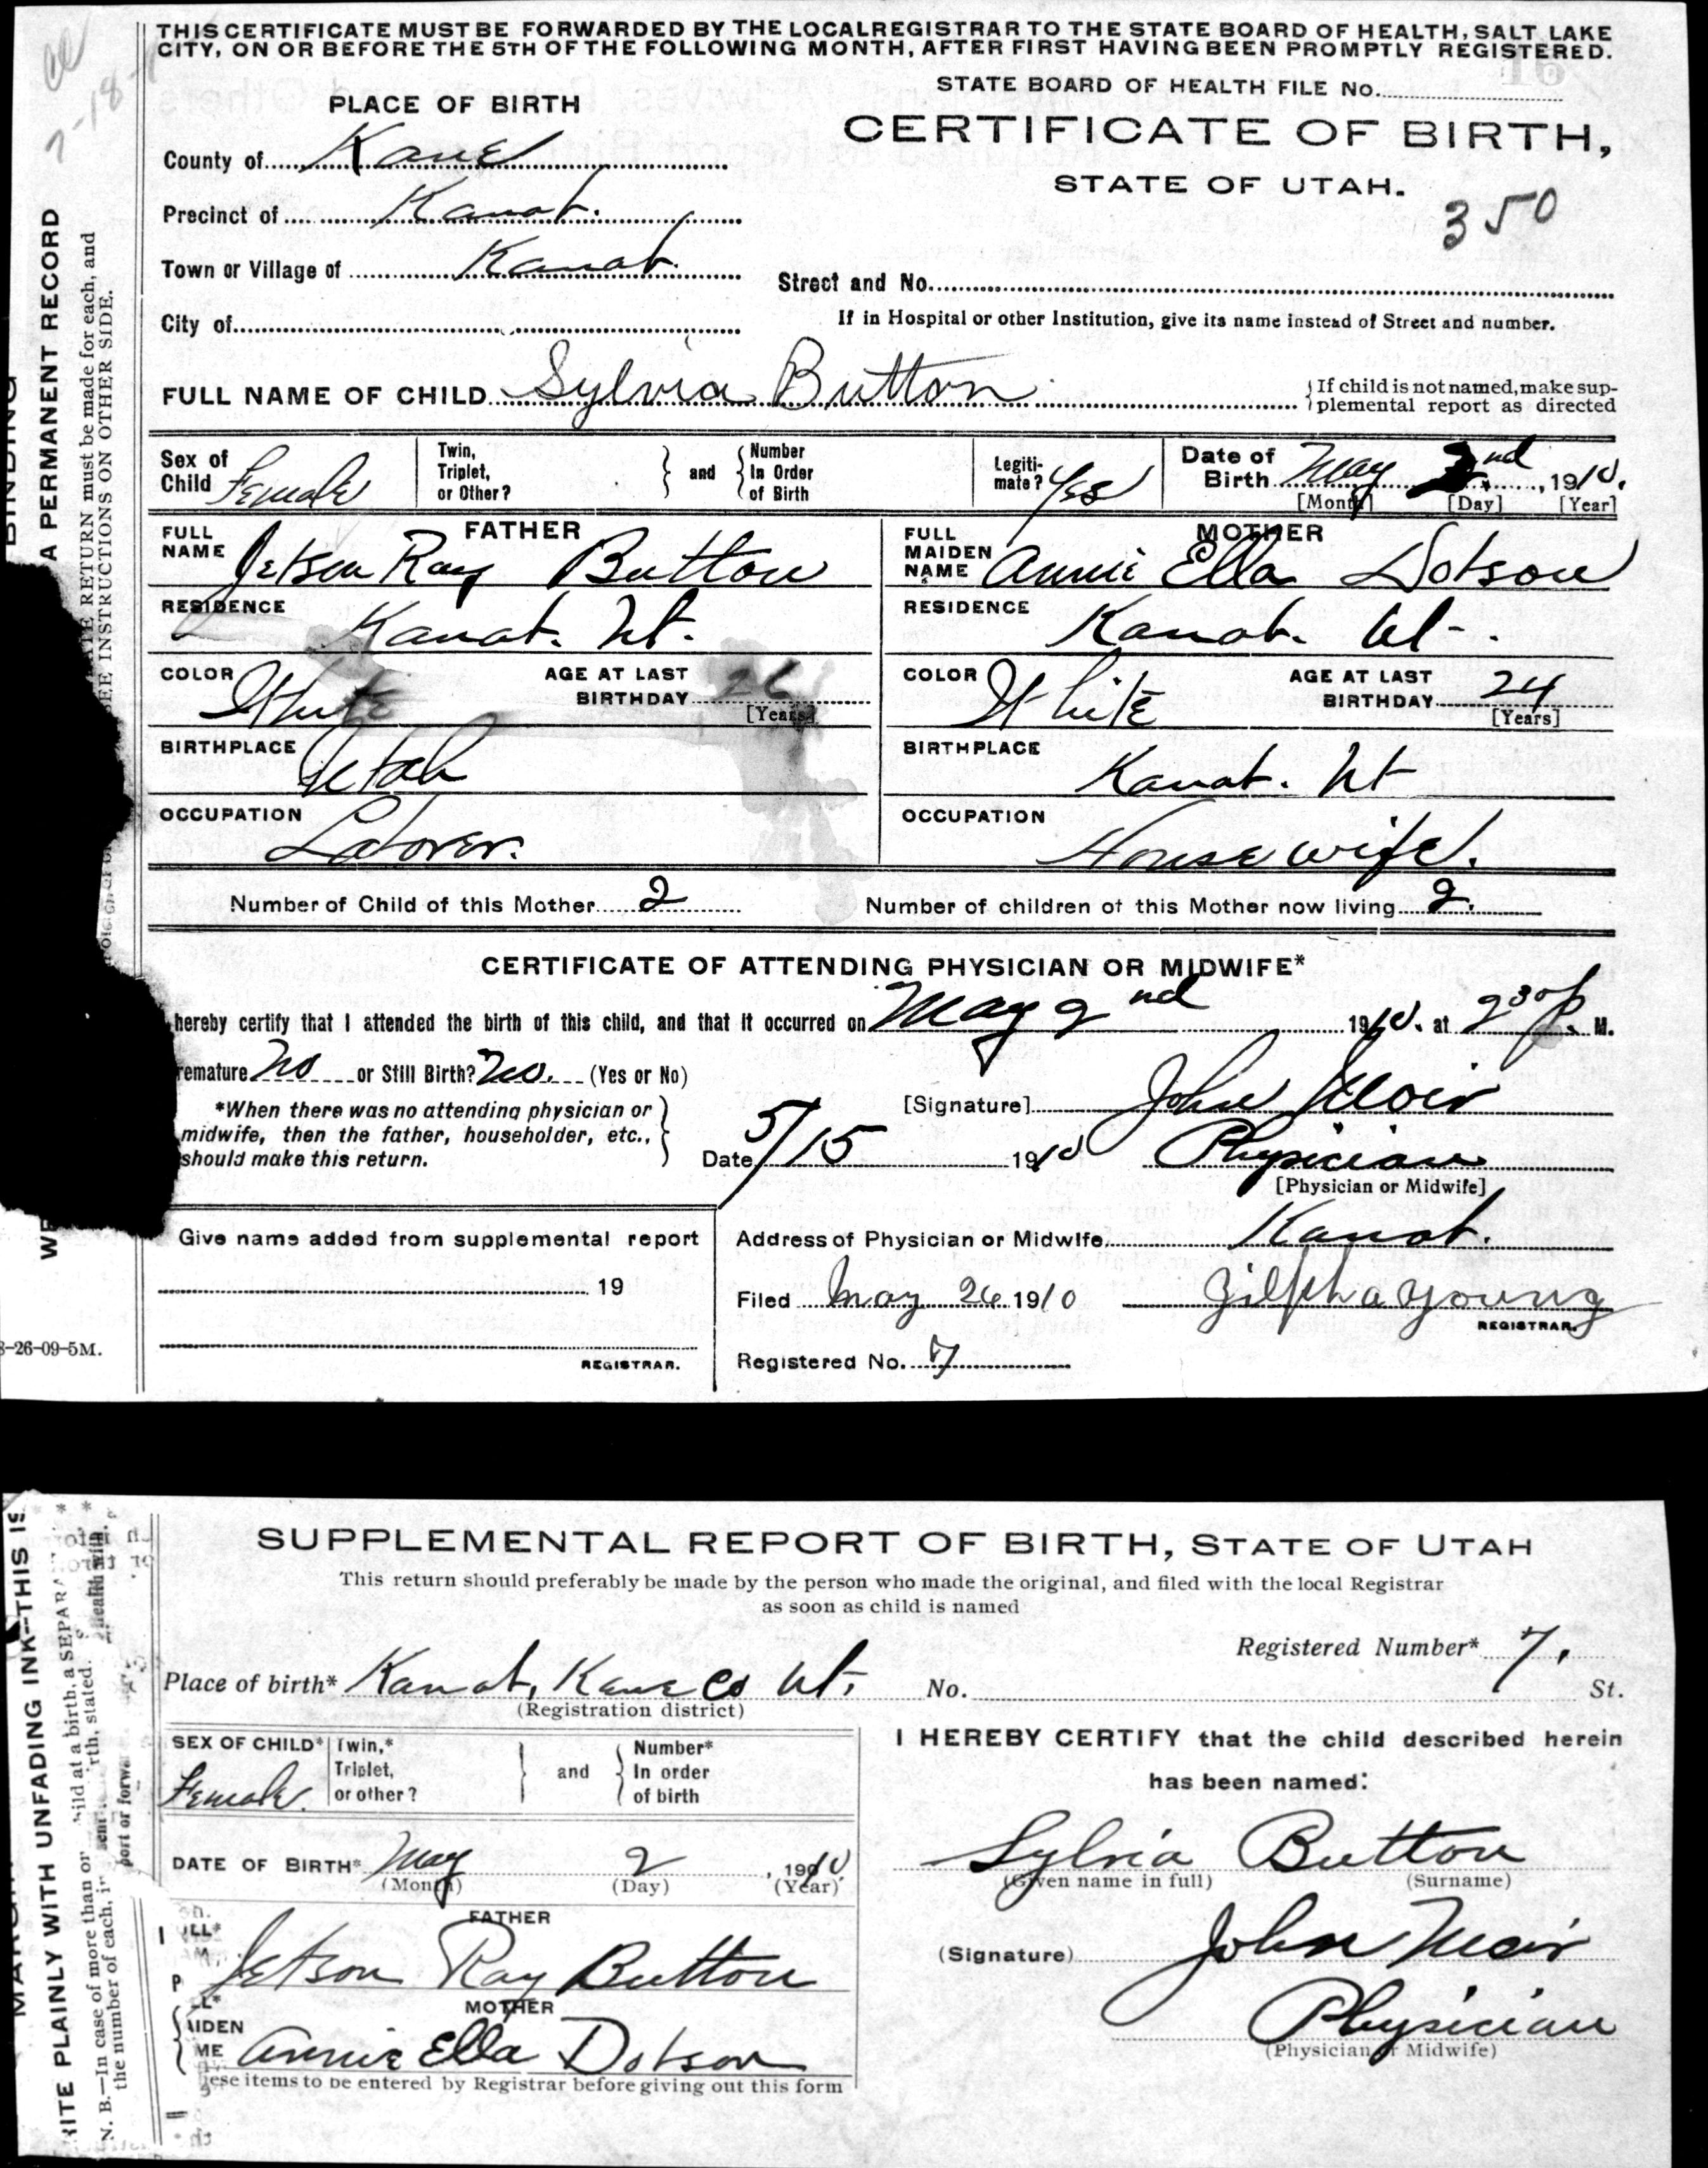 THIS CERTIFICATE MUST BE FORWARDED BY THE LOCAL REGISTRAR TO THE STATE BOARD OF HEALTH, SALT LAKE
CITY, ON OR BEFORE THE 5TH OF THE FOLLOWING MONTH, AFTER FIRST HAVING BEEN PROMPTLY REGISTERED.
STATE BOARD OF HEALTH FILE No.
16
PLACE OF BIRTH
CERTIFICATE OF BIRTH,
STATE OF UTAH.
350
County of Kane
Precinct of Kanab.
Town or Village of Kanab.
Street and No.
City of
If in Hospital or other Institution, give its name instead of Street and number.
FULL NAME OF CHILD Sylvia Button
If child is not named, make sup-
plemental report as directed
Sex of Child Female
Twin, Triplet, or Other?
and
Number In Order of Birth
Legiti-mate? Yes
Date of Birth May 2nd, 1910.
[Month] [Day] [Year]
FATHER
FULL NAME Jetson Ray Button
RESIDENCE Kanab. Ut.
COLOR White
AGE AT LAST BIRTHDAY 26
[Years]
BIRTHPLACE Utah
OCCUPATION Laborer.
MOTHER
FULL MAIDEN NAME Annie Ella Dobson
RESIDENCE Kanab. Ut.
COLOR White
AGE AT LAST BIRTHDAY 24
[Years]
BIRTHPLACE Kanab. Ut
OCCUPATION Housewife.
Number of Child of this Mother 2
Number of children of this Mother now living 2.
CERTIFICATE OF ATTENDING PHYSICIAN OR MIDWIFE*
hereby certify that I attended the birth of this child, and that it occurred on May 2nd 1910. at 2 30 P. M.
remature No or Still Birth? No. (Yes or No)
*When there was no attending physician or
midwife, then the father, householder, etc.,
should make this return.
[Signature] John Moir
Date 5/15 1910 Physician
[Physician or Midwife]
Give name added from supplemental report
19
REGISTRAR.
Address of Physician or Midwife Kanab.
Filed May 26 1910 Zilpha Young
REGISTRAR.
Registered No. 7
A PERMANENT RECORD
RETURN must be made for each, and
SEE INSTRUCTIONS ON OTHER SIDE.
8-26-09-5M.
SUPPLEMENTAL REPORT OF BIRTH, STATE OF UTAH
This return should preferably be made by the person who made the original, and filed with the local Registrar
as soon as child is named
Registered Number* 7.
Place of birth* Kanab, Kane Co Ut.
(Registration district)
No. St.
SEX OF CHILD* Female
Twin,* Triplet, or other?
and
Number* In order of birth
DATE OF BIRTH* May 2, 1910
(Month) (Day) (Year)
FATHER
Jetson Ray Button
MOTHER
AIDEN
ME Annie Ella Dobson
ese items to be entered by Registrar before giving out this form
I HEREBY CERTIFY that the child described herein
has been named:
Sylvia Button
(Given name in full) (Surname)
(Signature) John Moir
Physician
(Physician or Midwife)
RITE PLAINLY WITH UNFADING INK—THIS IS
N. B.—In case of more than or ild at a birth, a SEPARA
the number of each, i rth, stated.
port or forwa